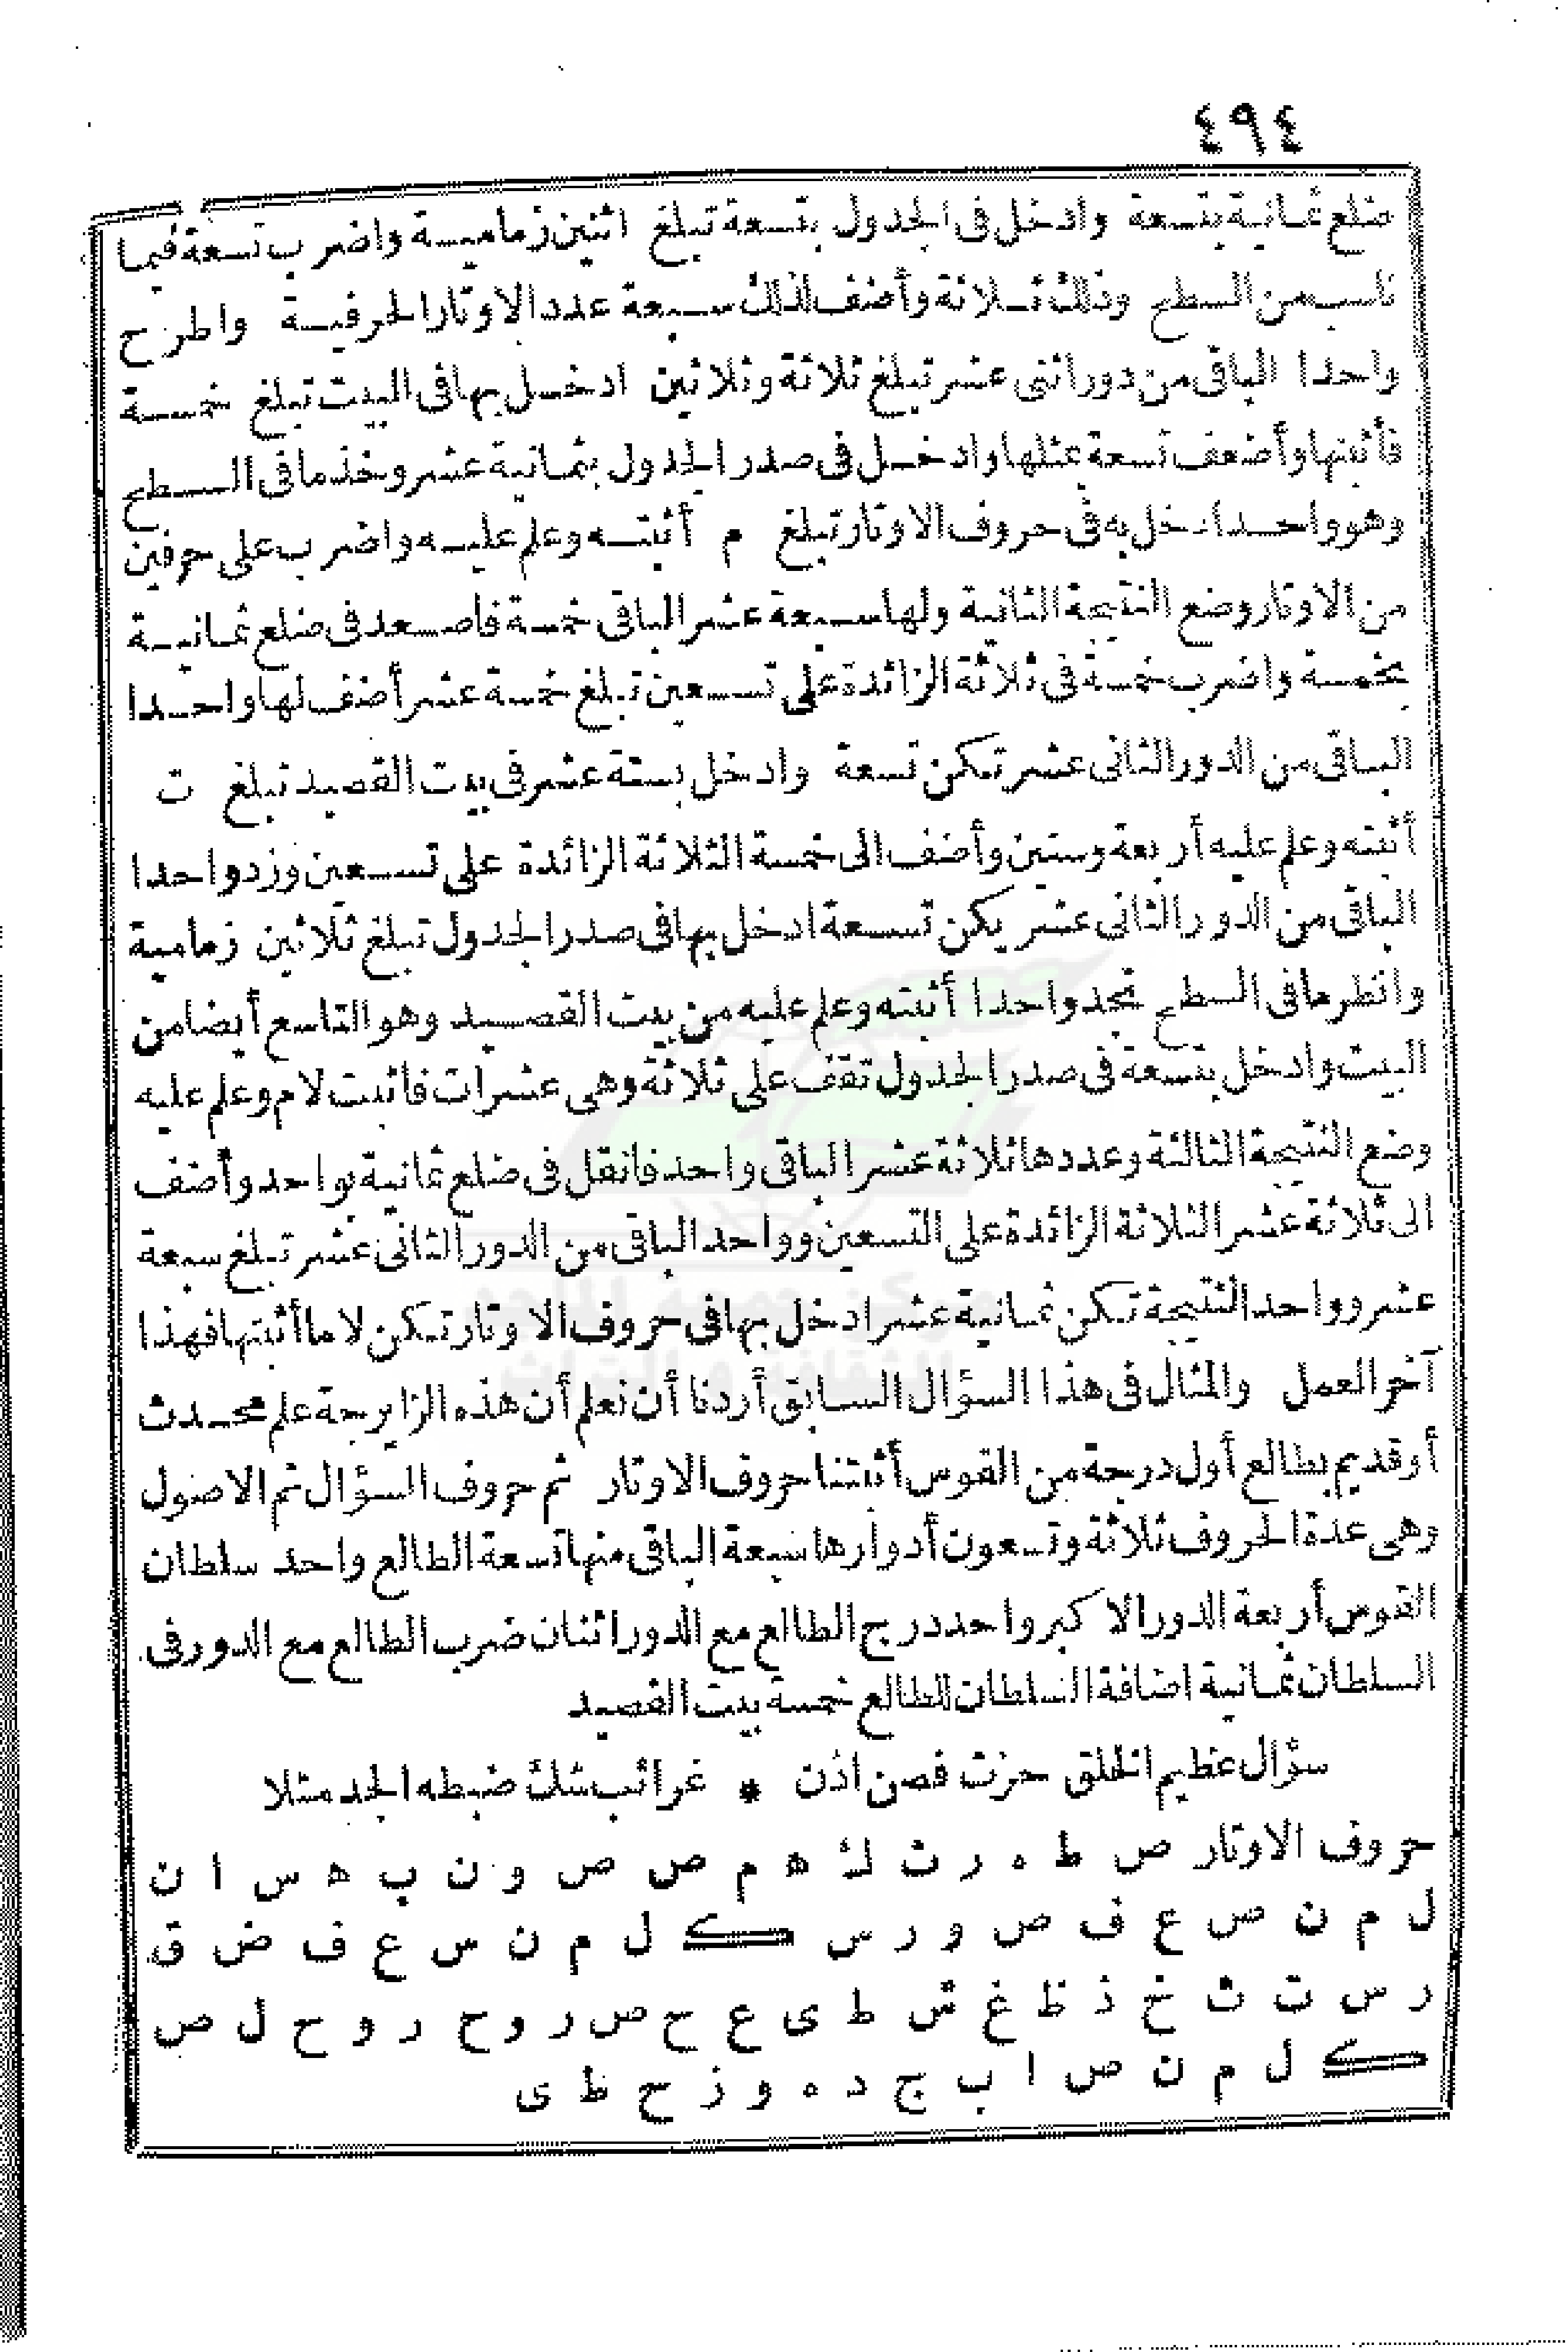 ٤٩٤
ضلع ثمانية بتسعة وادخل فى الجدول بتسعة تبلغ اثنين زمامية واضرب تسعة فيما
ناسب من السطح وذلك ثلاثة وأضف لذلك سبعة عدد الاوتار الحرفية واطرح
واحدا الباقى من دور اثنى عشر تبلغ ثلاثة وثلاثين ادخل بها فى البيت تبلغ خمسة
فأثبتها وأضعف تسعة بمثلها وادخل فى صدر الجدول بثمانية عشر وخذ ما فى السطح
وهو واحد ادخل به فى حروف الاوتار تبلغ م أثبته وعلم عليه واضرب على حرفين
من الاوتار وضع النتيجة الثانية ولها سبعة عشر الباقى خمسة فاصعد فى ضلع ثمانية
بخمسة واضرب خمسة فى ثلاثة الزائدة على تسعين تبلغ خمسة عشر أضف لها واحدا
الباقى من الدور الثانى عشر تكن تسعة وادخل بستة عشر فى بيت القصيد تبلغ ت
أثبته وعلم عليه أربعة وستين وأضف الى خمسة الثلاثة الزائدة على تسعين وزد واحدا
الباقى من الدور الثانى عشر يكن تسعة ادخل بها فى صدر الجدول تبلغ ثلاثين زمامية
وانظر ما فى السطح تجد واحدا أثبته وعلم عليه من بيت القصيد وهو التاسع أيضا من
البيت وادخل بتسعة فى صدر الجدول تقف على ثلاثة وهى عشرات فاثبت لام وعلم عليه
وضع النتيجة الثالثة وعددها ثلاثة عشر الباقى واحد فانقل فى ضلع ثمانية بواحد وأضف
الى ثلاثة عشر الثلاثة الزائدة على التسعين وواحد الباقى من الدور الثانى عشر تبلغ سبعة
عشر وواحد النتيجة تكن ثمانية عشر ادخل بها فى حروف الاوتار تكن لاما أثبتها فهذا
آخر العمل والمثال فى هذا السؤال السابق أردنا أن نعلم أن هذه الزايرجة علم محدث
أو قديم بطالع أول درجة من القوس أثبتنا حروف الاوتار ثم حروف السؤال ثم الاصول
وهى عدة الحروف ثلاثة وتسعون أدوارها سبعة الباقى منها تسعة الطالع واحد سلطان
القوس أربعة الدور الاكبر واحد درج الطالع مع الدور اثنان ضرب الطالع مع الدور فى
السلطان ثمانية اضافة السلطان للطالع خمسة بيت القصيد
سؤال عظيم الخلق حزت فصن اذن * غرائب شك ضبطه الجد مثلا
حروف الاوتار ص ط ه ر ث ك ه م ص ص و ن ب ه س ا ن
ل م ن ص ع ف ص و ر س ك ل م ن س ع ف ض ق
ر س ت ث خ ذ ظ غ ش ط ى ع ح ص ر و ح ر و ح ل ص
ك ل م ن ص ا ب ج د ه و ز ح ط ى
مركز جمعة الماجد
للثقافة و التراث